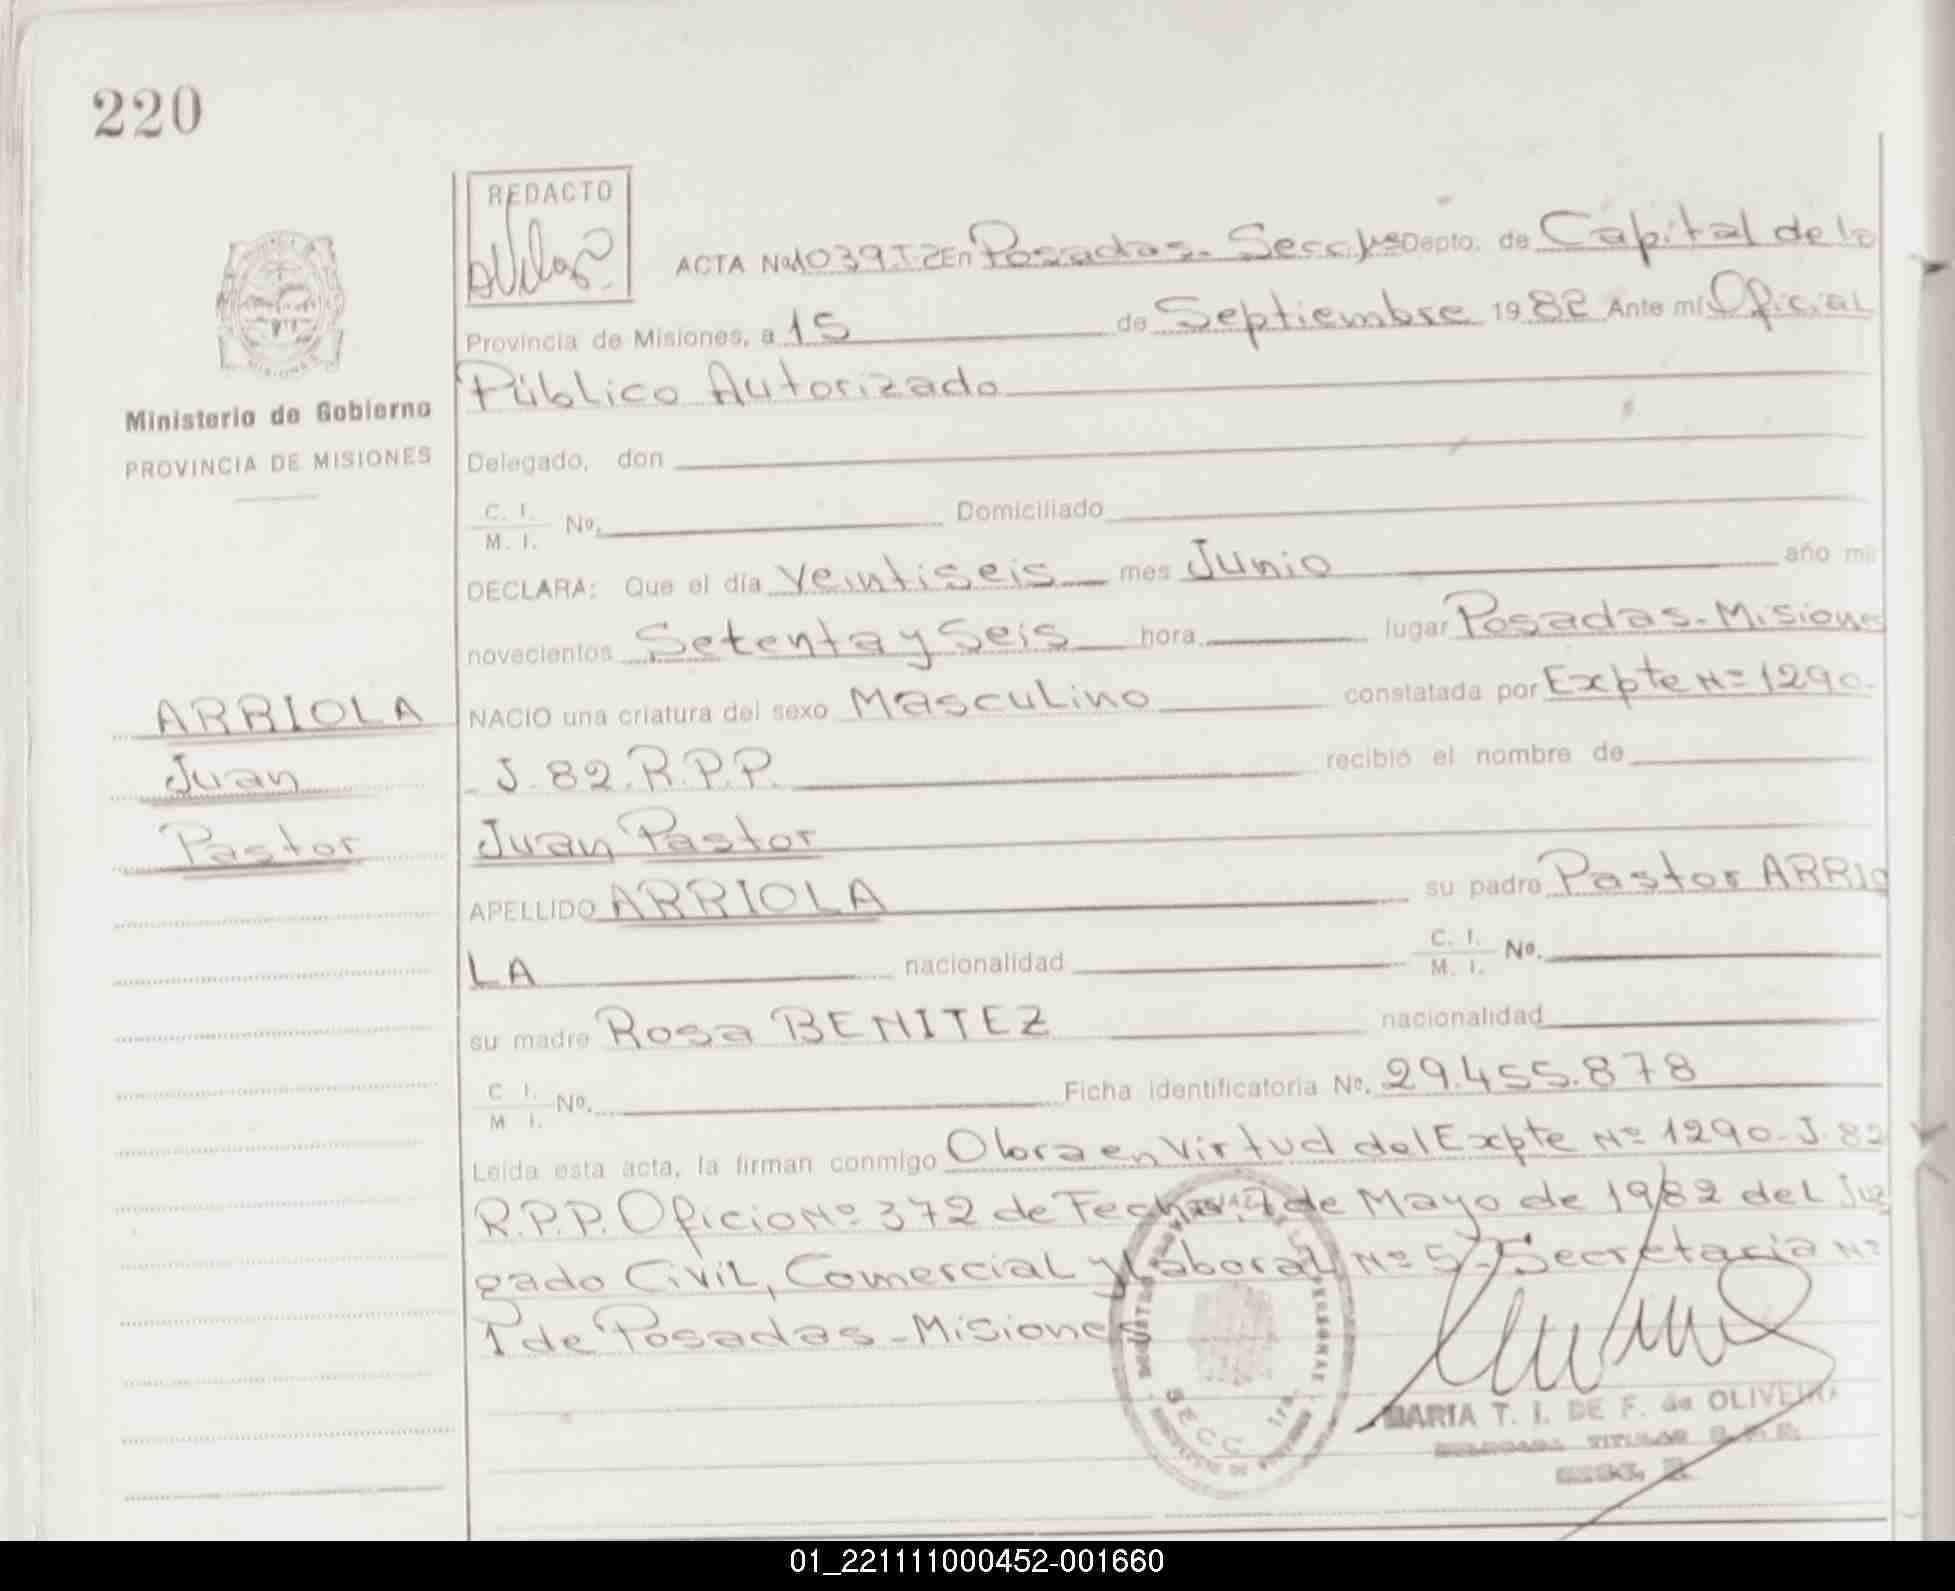 220
REDACTO
ACTA No 1039.T2 En Posadas. Secc 1ra Depto. de Capital de la
Provincia de Misiones, a 15 de Septiembre 1982 Ante mí Oficial
Público Autorizado
MISIONES
Ministerio de Gobierno
PROVINCIA DE MISIONES
Delegado, don
C. I.
M. I. No. Domiciliado
DECLARA: Que el día Veintiseis mes Junio año mil
novecientos Setenta y Seis hora lugar Posadas-Misiones
ARRIOLA
NACIO una criatura del sexo Masculino constatada por Expte Nº 1290-
Juan
- J. 82. R.P.P. recibió el nombre de
Pastor
Juan Pastor
APELLIDO ARRIOLA su padre Pastor ARRIO
LA nacionalidad C. I.
M. I. No.
su madre Rosa BENITEZ nacionalidad
C I.
M I. No. Ficha identificatoria No. 29.455.878
Leída esta acta, la firman conmigo Obra en Virtud del Expte Nº 1290-J.82
R.P.P. Oficio Nº 372 de Fecha de Mayo de 1982 del Juz
gado Civil, Comercial y Laboral Nº 5 - Secretaria Nº
1 de Posadas - Misiones
PERSONAS
SECC 1ra.
MARIA T. I. DE F. de OLIVEIRA
DELEGADA TITULAR
SECC. 
01_221111000452-001660